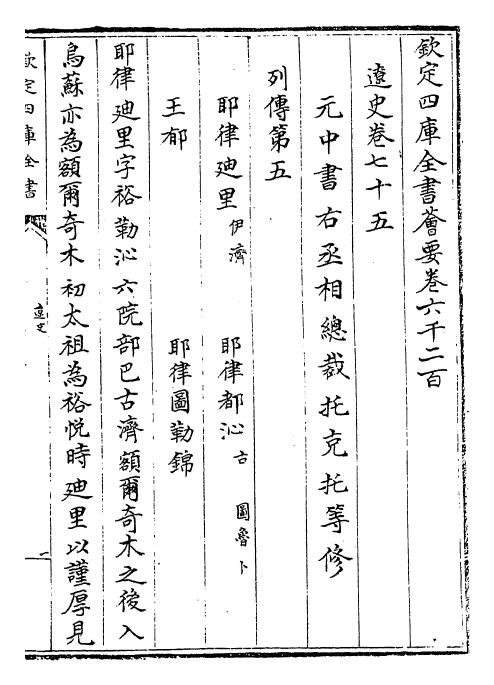 欽定四庫全書薈要卷六千二百
遼史卷七十五
元中書右丞相總裁托克托等修
列傳第五
耶律廸里 伊濟 耶律都沁 古 圖魯卜
王郁 耶律圖勒錦
耶律廸里字裕勒沁六院部巴古濟額爾奇木之後入
烏蘇亦為額爾奇木初太祖為裕悅時廸里以謹厚見
欽定四庫全書
遼史
一